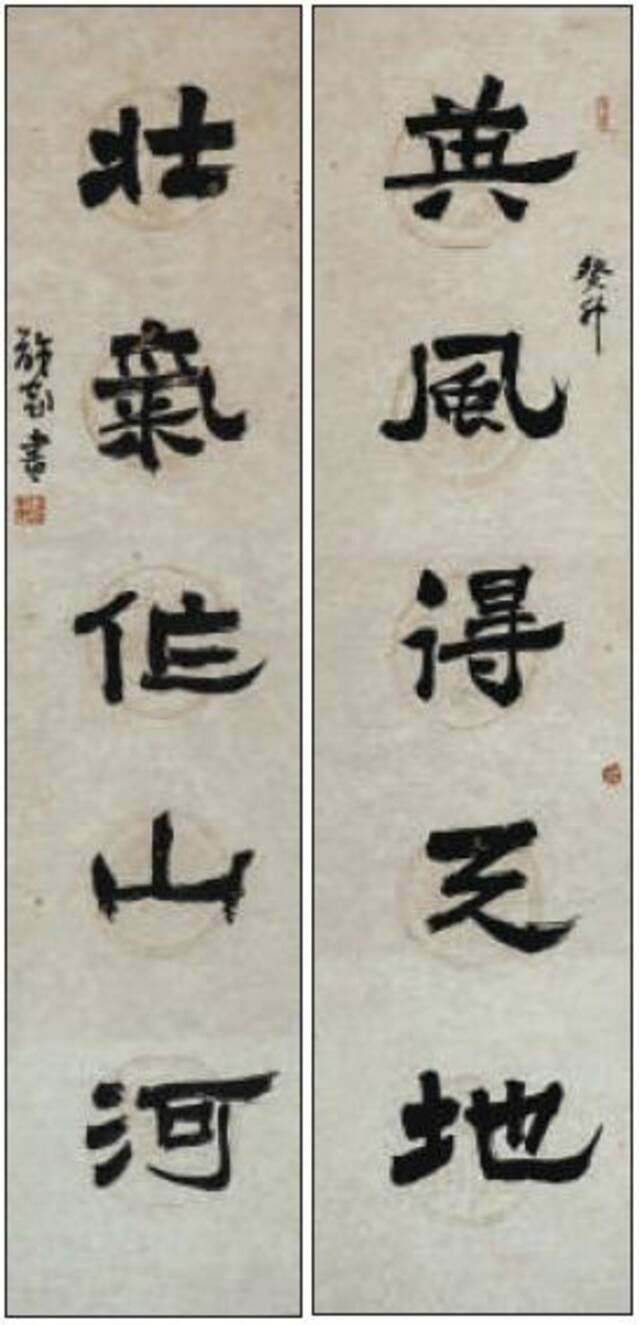 英風得天地
癸卯
壯氣作山河
書